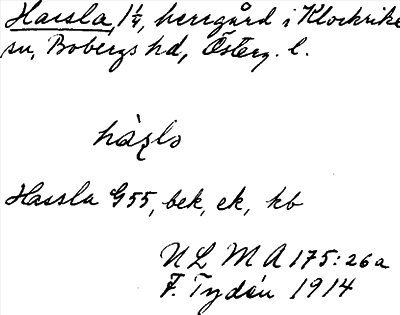 Hassla, 1 1/4, herrgård i Klockrike
sn, Bobergs hd, Österg. l.
Hassla G55, bek, ek, kb
N L M A 175:26a
F. Tydén 1914